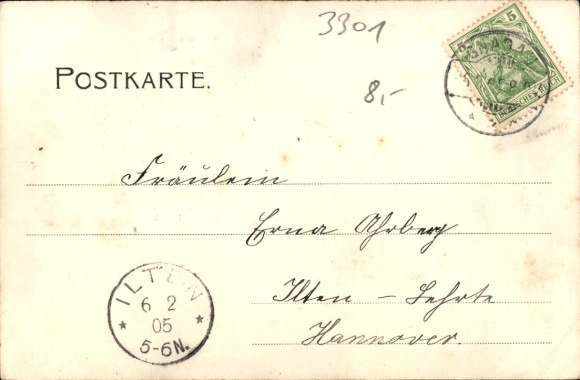 3301
5
POSTKARTE.
8,-
Fräulein
Erna Ahrberg
Ilten - Lehrte
Hannover.
ILTEN
6 2
05
5-6N.